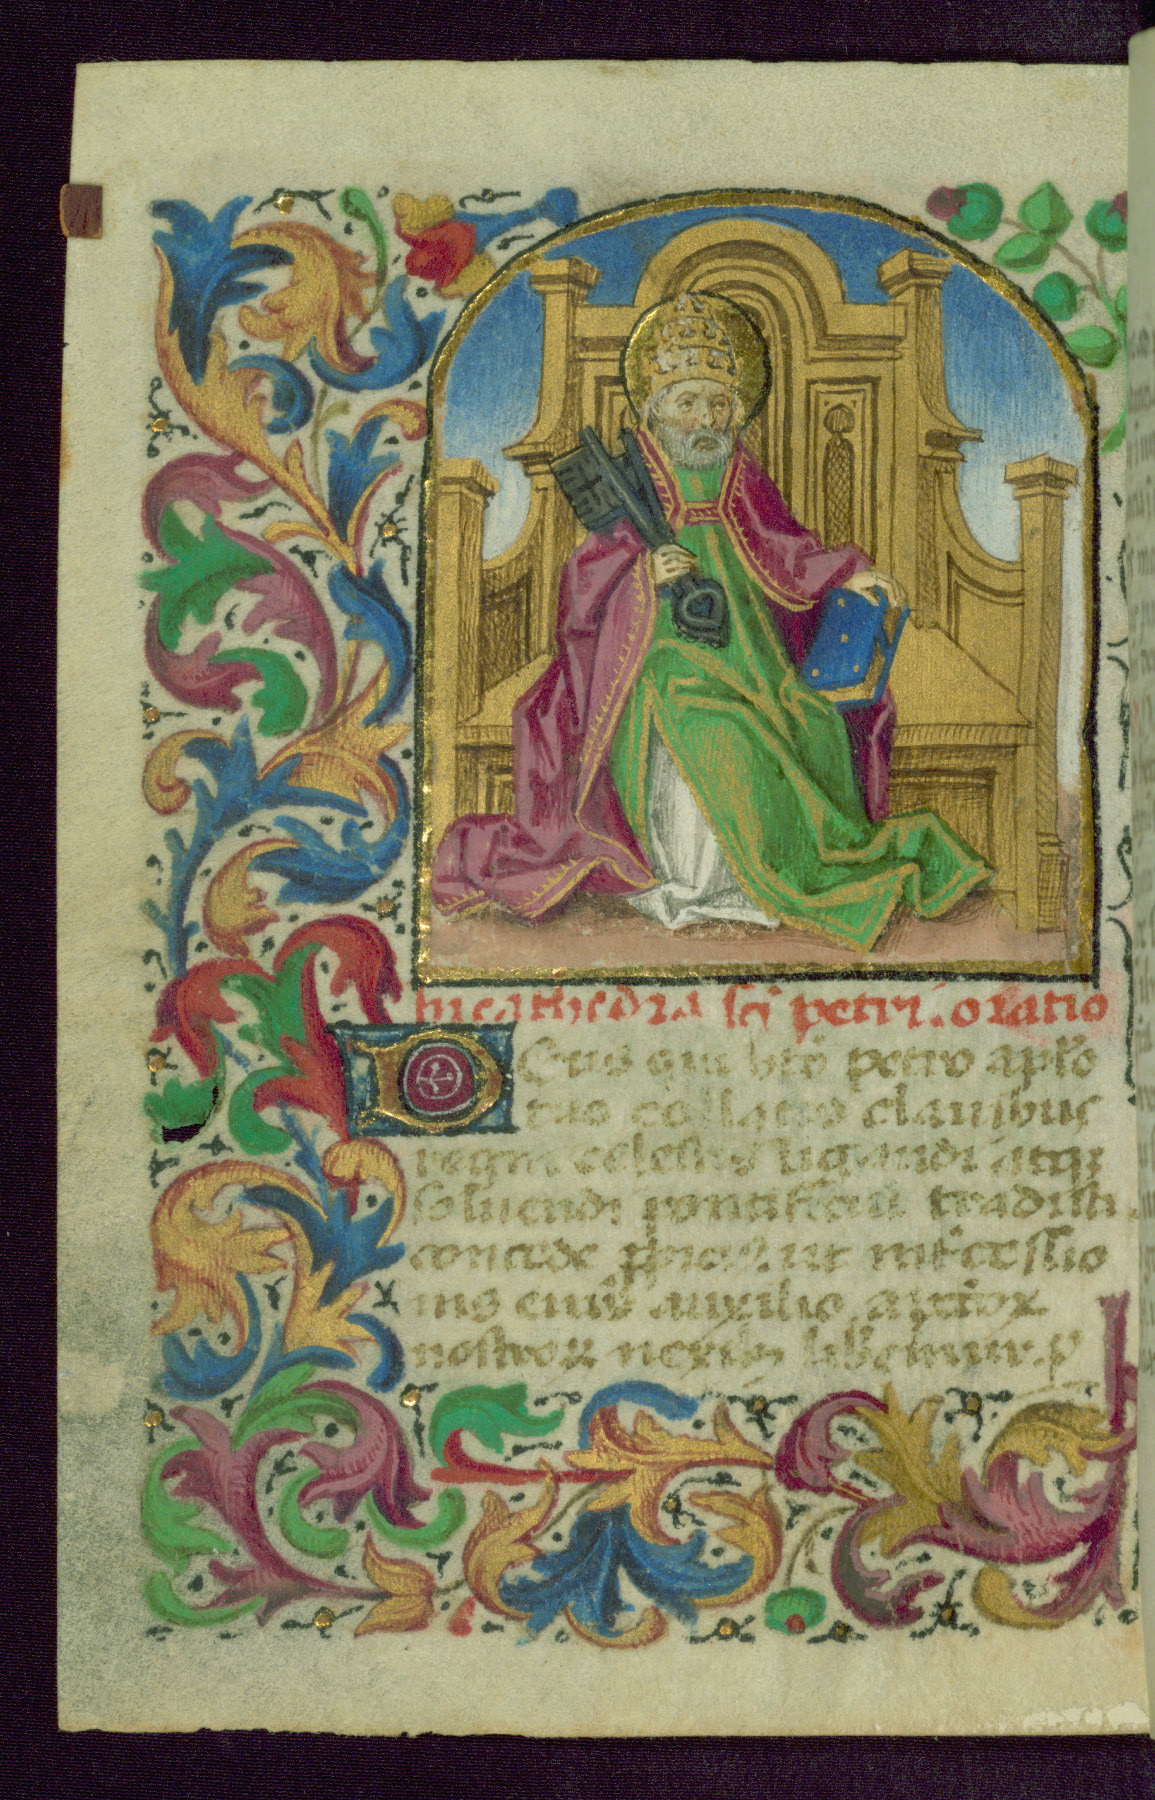 In cathedra sci petri. oratio
Deus qui bto petro aplo
tuo collatis clauibus
regni celestis ligandi atqz
soluendi pontificiu tradidisti
concede ppicius ut intercessio
nis eius auxilio a pctoꝝ
nostroꝝ nexibz liberemur. p